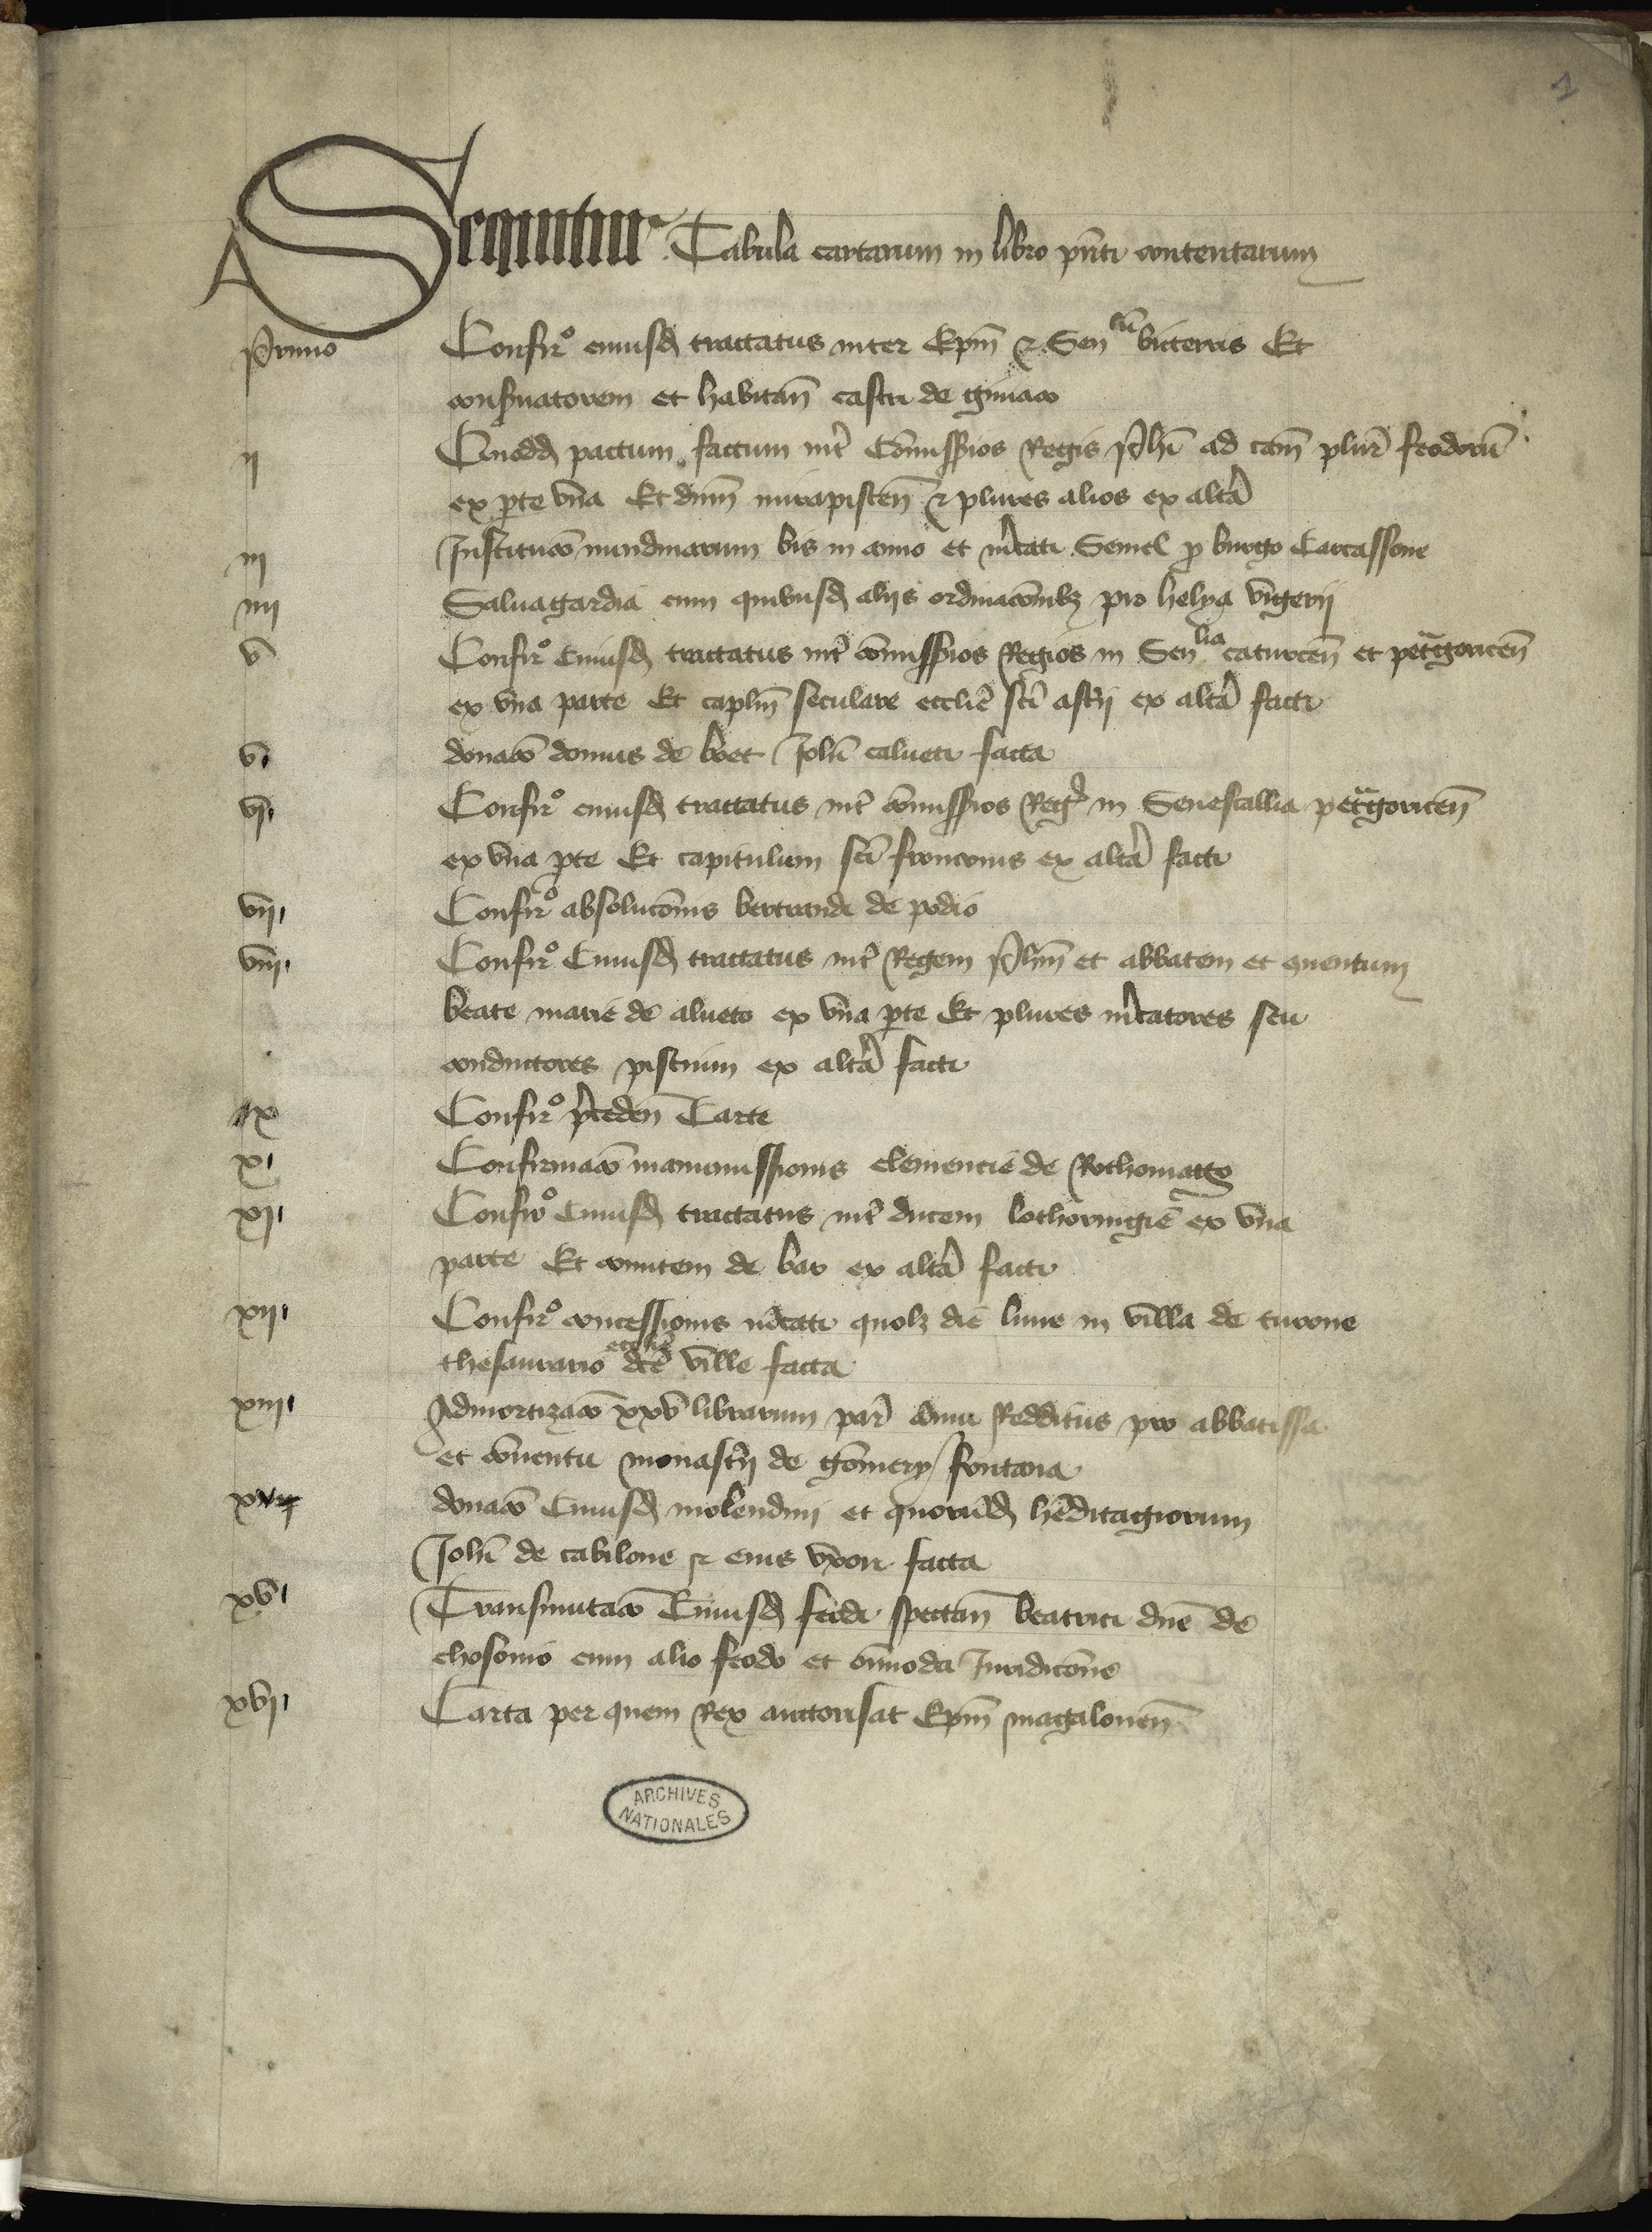 1
Sequitur Tabula cartarum in libro pñti contentarum
A
Primo Confirᵒ cuiusd̃ tractatus inter Ep̃m ⁊ Senˡũ biterris Et
consuatorem et habitañ castri de giniaco
ij Quodd̃ pactum factum int̃ Cõmissios Regis Ph̃i ad cãm plur̃ feodorũ
ex p̱te vña Et dñm mirapisceñ ⁊ plures alios ex altã
iij Institucõ nundinarum bis in anno et m̃cati Semel p̱ burgo Carcassone
iiij Saluagardia cum quibusd̃ aliis ordinacõnibꝫ pro helya vigerij
v Confirᵒ Cuiusd̃ tractatus int̃ cõmissios Regios in Senˡⁱᵃ caturceñ et petᵃgoriceñ
ex vña parte Et capl̃m seculare eccl̃ie sc̃i astĩj ex altã facti
v donacõ domus de boet Joh̃i calueti facta
vj Confirᵒ cuiusd̃ tractatus int̃ cõmissios Reg̃ in Senescallia petᵃgoriceñ
ex vña p̱te Et capitulum sc̃i fronconis ex altã facti
vij Confirᵒ absolucõnis bertrandi de podio
viij Confirᵒ Cuiusd̃ tractatus int̃ Regem Ph̃m et abbatem et ꝯuentum
beate marie de alueto ex vña p̱te Et plures m̃catores seu
conductores piscium ex altã facti
ix Confirᵒ p̃cedeñ Carte
x Confirmacõ manumissionis clemencie de Rothomago
xj Confirᵒ Cuiusd̃ tractatus int̃ ducem lothoringie ex vña
parte Et comitem de bar ex altã facti
xij Confirᵒ concessionis m̃cati quolꝫ die lune in villa de turone
thesaurario eccl̃ie dc̃e ville facta
xiij Admortizacõ xxv librarum par̃ ãnui Redditus pro abbatissa
et cõuentu monast̃ij de gõmery fontana
xiiij donacõ Cuiusd̃ molendini et quorũd̃ h̃editagiorum
Joh̃i de cabilone ⁊ eius vxori facta
xv Transmutacõ Cuiusd̃ feodi spectañ beatrici dñe de
chosonio cum alio feodo et õimoda Juridicõne
xvj Carta per quem Rex auctorisat Ep̃m magaloneñ
ARCHIVES
NATIONALES